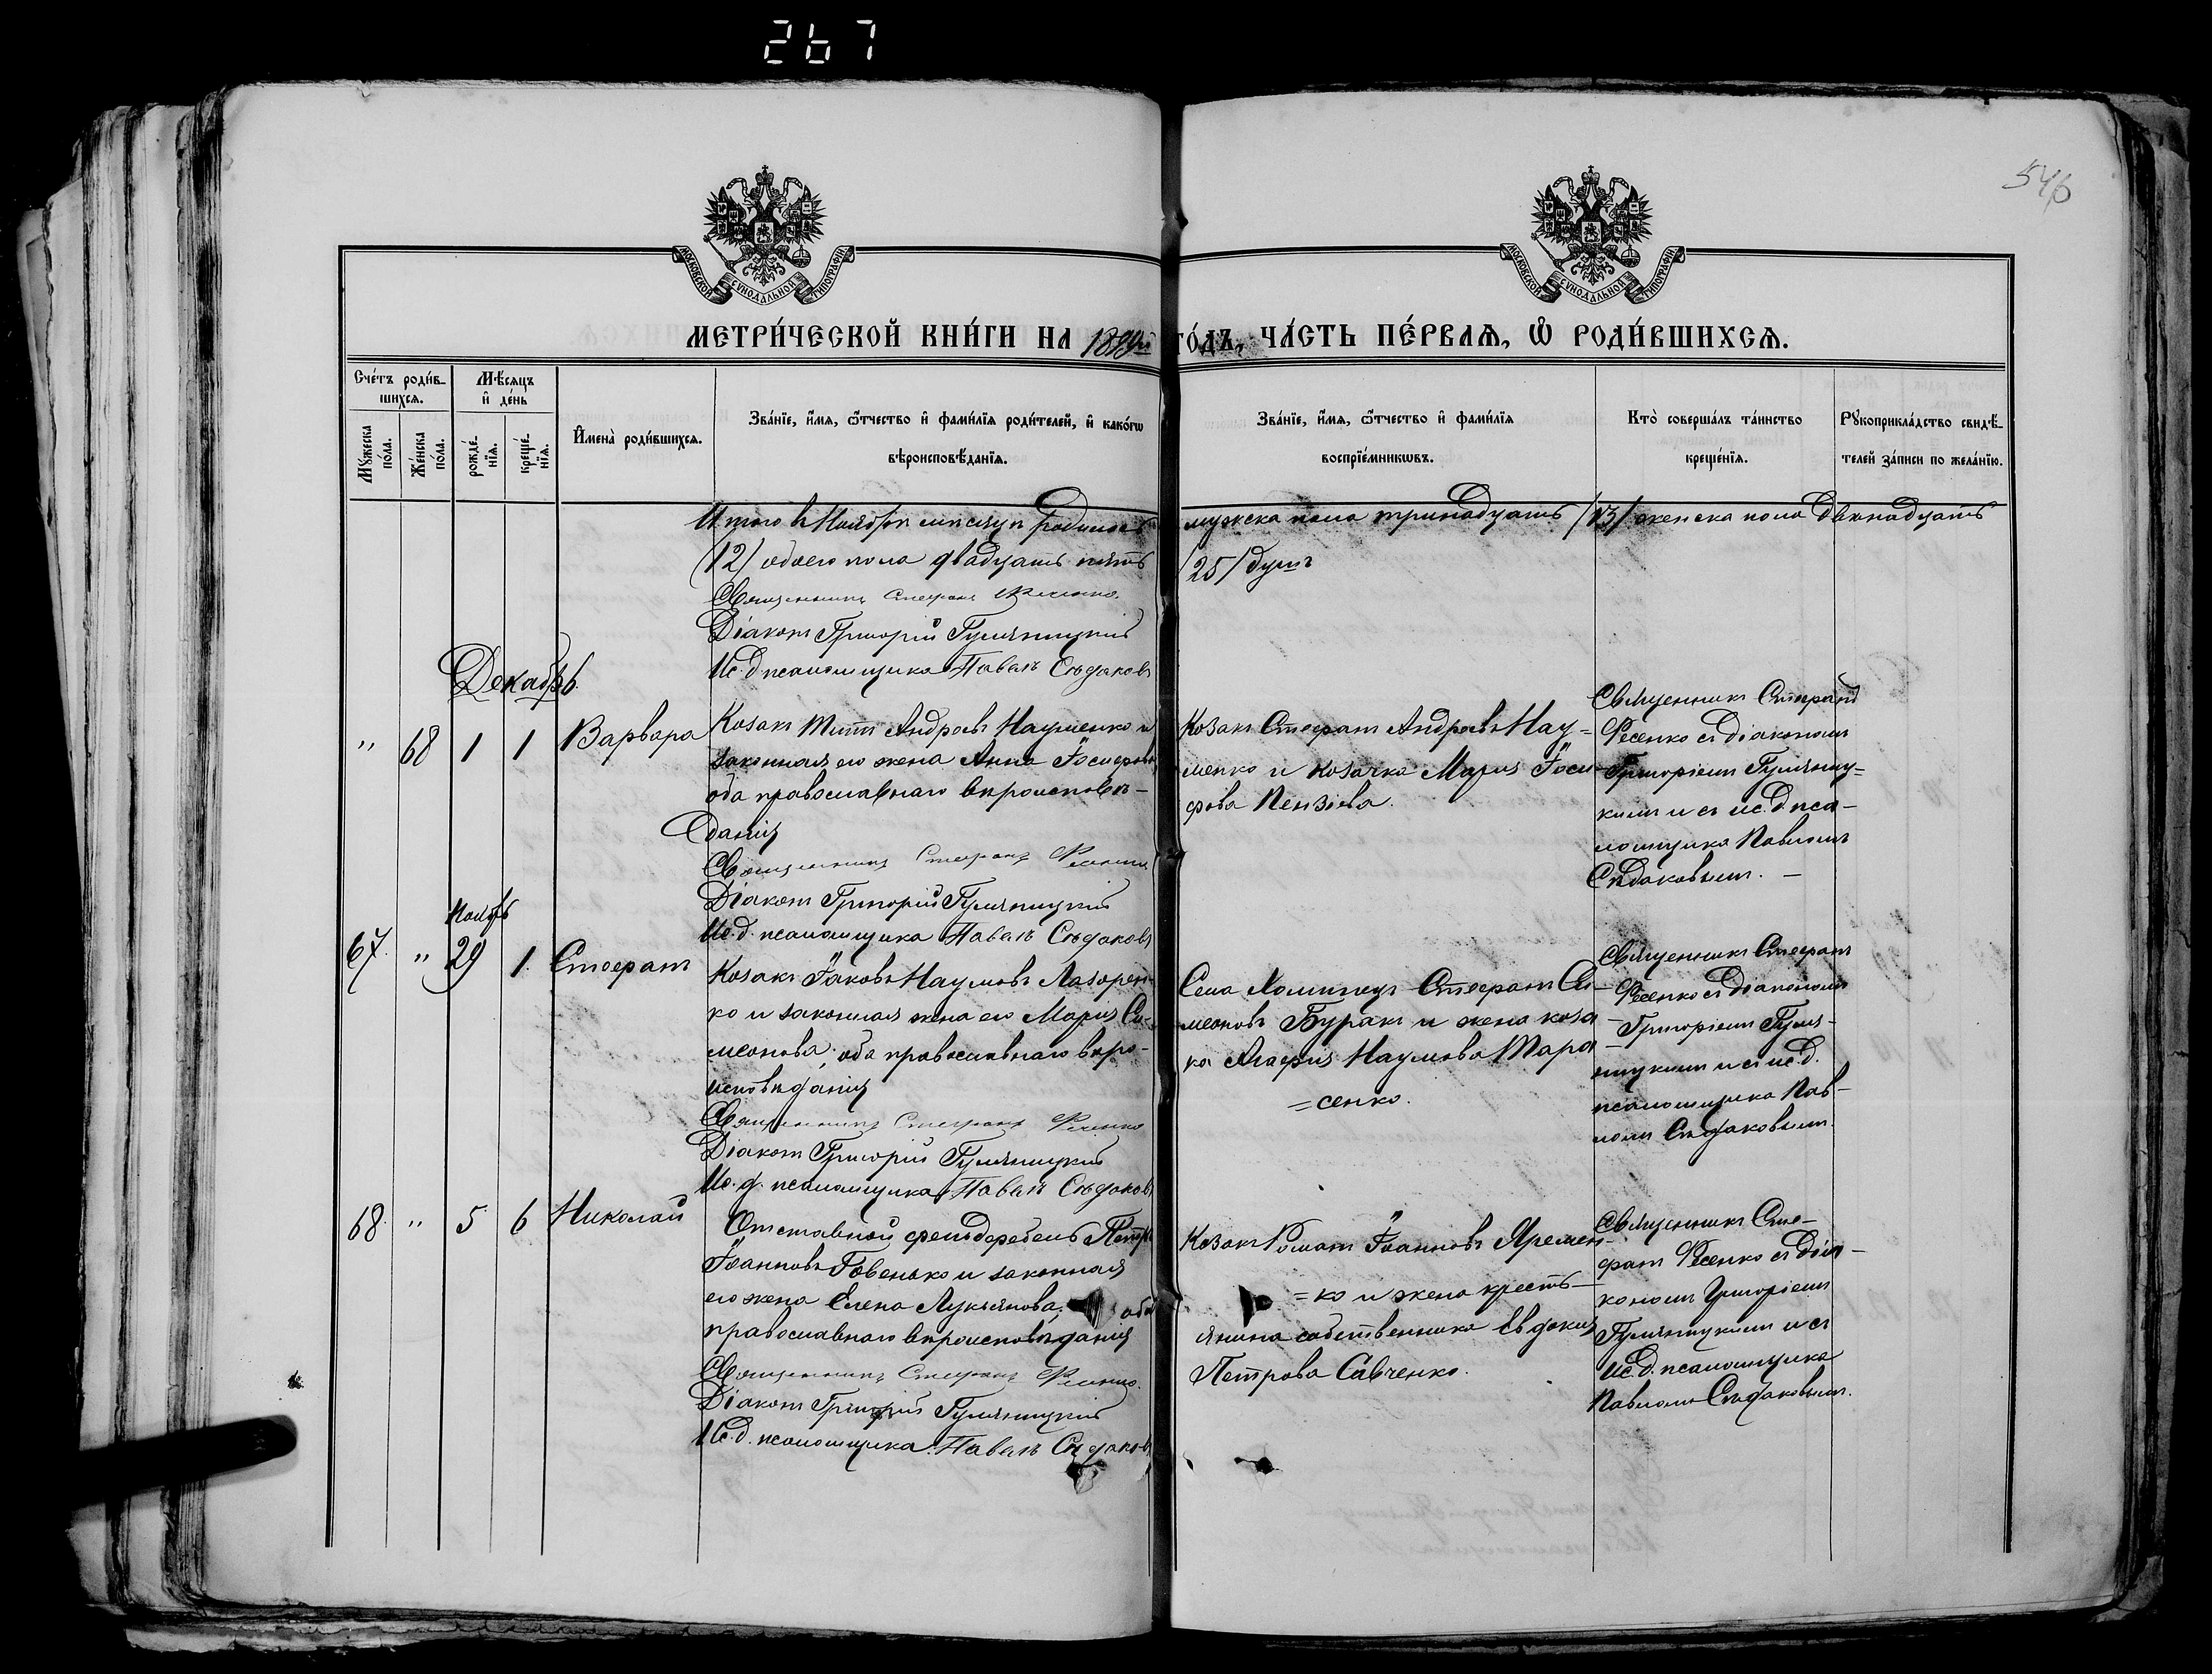 267
546
МОСКОВСКОЙ СѴНОДАЛЬНОЙ ТИПОГРАФІИ
МОСКОВСКОЙ СѴНОДАЛЬНОЙ ТИПОГРАФІИ
МЕТРИ́ЧЕСКОЙ КНИ́ГИ НА ГО́ДЪ, ЧА́СТЬ ПЕ́РВАѦ, Ѽ РОДИ́ВШИХСѦ.
Сче́тъ роди́в-
шихсѧ.
Мѣ́сѧцъ
и҆ де́нь
Мꙋ́жеска
по́ла.
Же́нска
по́ла.
рожде́-
нїѧ.
креще́-
нїѧ.
И҆мена̀ роди́вшихсѧ.
Зва́нїе, и҆́мѧ, ѻ҆́тчество и҆ фами́лїѧ роди́телей, и҆ како́гѡ
вѣроисповѣ́данїѧ.
Зва́нїе, и҆́мѧ, ѻ҆́тчество и҆ фами́лїѧ
воспрїе́мникѡвъ.
Кто̀ соверша́лъ та́инство
креще́нїѧ.
Рꙋкоприкла́дство свидѣ́-
телей за́писи по жела́нїю.
Итого в Ноябрѣ мѣсяцѣ родилось мужска пола тринадцать /13/ женска пола двѣнадцать
/12/ обоего пола двадцать пять /25/ душъ
Священникъ Стефанъ Фесенко.
Діаконъ Григорій Гумяницкій
Ис. д. псаломщика Павелъ Сѣдаковъ
Декабрь
" 68 1 1 Варвара
Козакъ Титъ Андреевъ Науменко и
законная его жена Анна Іосифова
оба православнаго вѣроисповѣ-
данія
Священникъ Стефанъ Фесенко
Діаконъ Григорій Гумяницкій
Ис. д. псаломщика Павелъ Сѣдаковъ
Козакъ Стефанъ Андреевъ Нау-
менко и козачка Марія Іоси-
фова
Священникъ Стефанъ
Фесенко съ діакономъ
Григоріемъ Гумяниц-
кимъ и съ ис. д. пса-
ломщика Павломъ
Сѣдаковымъ. -
Ноябрь
67. " 29 1. Стефанъ
Козакъ Іаковъ Наумовъ Лазорен-
ко и законная жена его Марія Си-
меонова, оба православнаго вѣро-
исповѣданія
Священникъ Стефанъ Фесенко
Діаконъ Григорій Гумяницкій
Ис. д. псаломщика Павелъ Сѣдаковъ
Села Хоминецъ Стефанъ Си-
меоновъ Буракъ и жена коза-
ка Агафія Наумова Тара
=сенко.
Священникъ Стефанъ
Фесенко съ діакономъ
Григоріемъ Гумя-
ницкимъ и съ ис. д.
псаломщика Пав-
ломъ Сѣдаковымъ.
68. " 5 6 Николай
Отставной фельдфебель Петръ
Іоанновъ Говенько и законная
его жена Елена Лукьянова, оба
православнаго вѣроисповѣданія
Священникъ Стефанъ Фесенко.
Діаконъ Григорій Гумяницкій
Ис. д. псаломщика Павелъ Сѣдаковъ
Козакъ Романъ Іоанновъ Яремен-
=ко и жена кресть-
янина собственника Евдокія
Петрова Савченко.
Священникъ Сте-
фанъ Фесенко съ діа-
кономъ Григоріемъ
Гумяницкимъ и съ
ис. д. псаломщика
Павломъ Сѣдаковымъ.